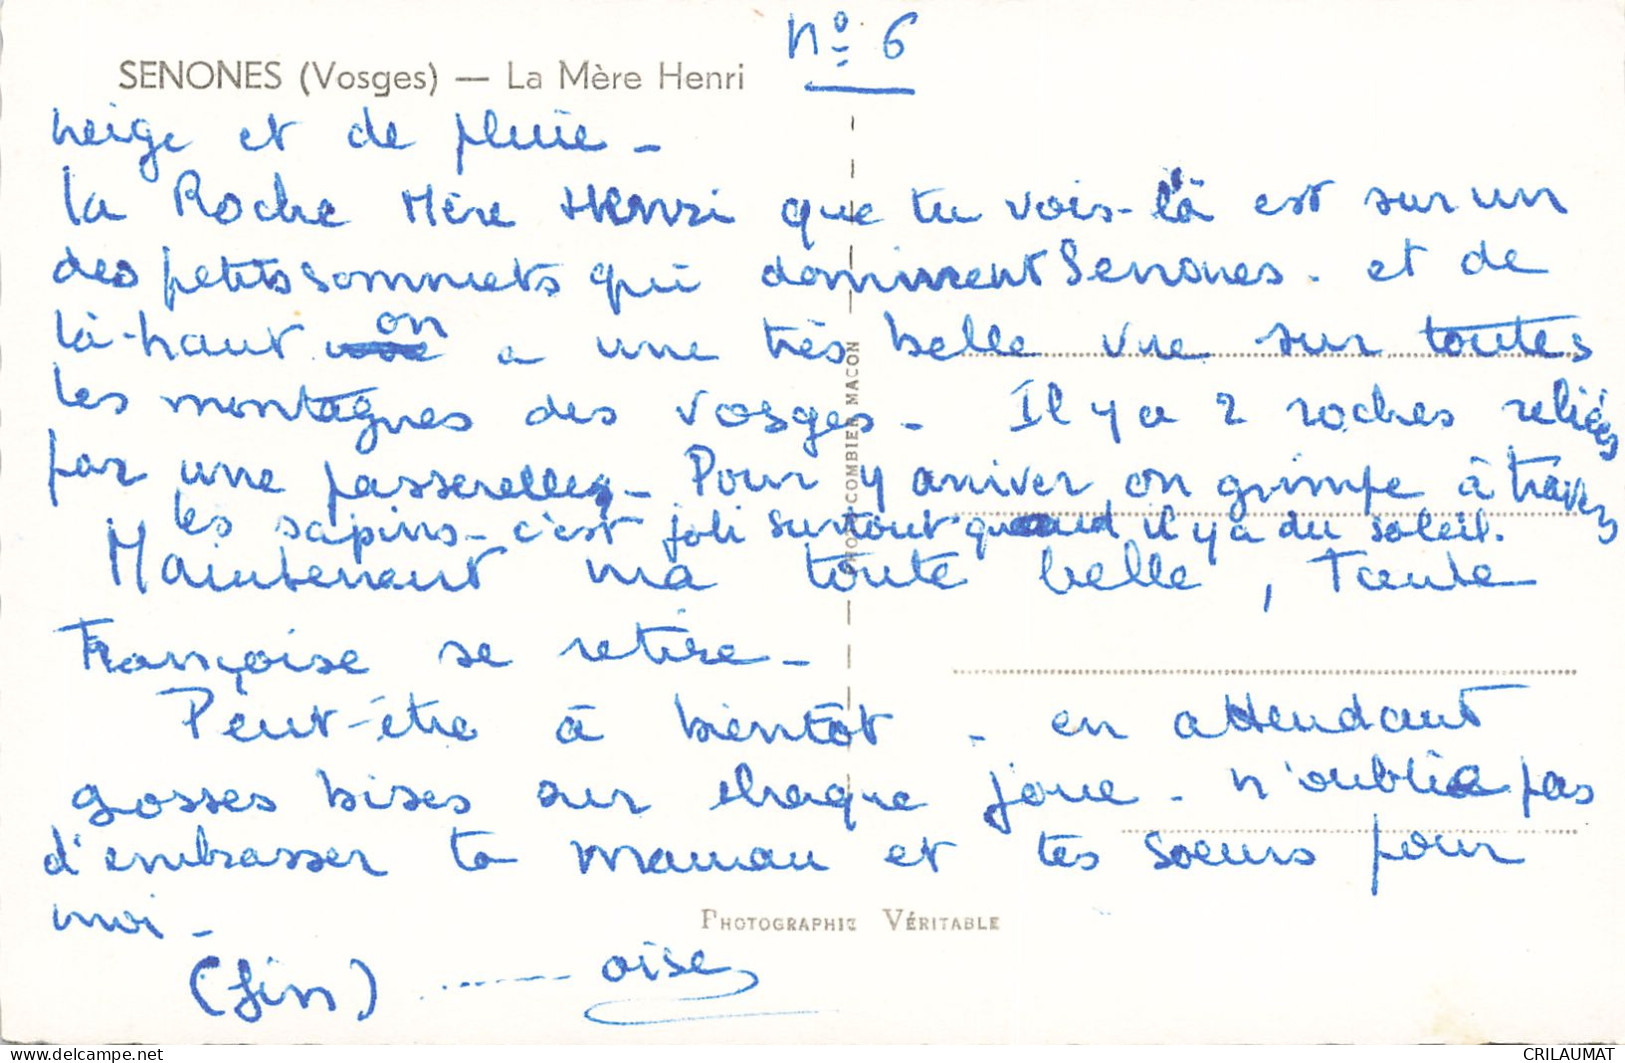 n° 6
SENONES (Vosges) — La Mère Henri
neige et de pluie -
la Roche Mère Henri que tu vois-là est sur un
des petits sommets qui dominent Senones. et de
là-haut on a une très belle vue sur toutes
les montagnes des Vosges - Il y a 2 roches reliées
par une passerelle - Pour y arriver on grimpe à travers
les sapins - c'est joli surtout quand il y a du soleil.
Maintenant ma toute belle, Tante
Françoise se retire -
Peut-être à bientôt - en attendant
gosses bises sur chaque joue - n'oublie pas
d'embrasser ta maman et tes soeurs pour
moi -
(fin) ...... oise
PHOTOGRAPHIE VÉRITABLE
PHOT. COMBIER MACON
CRILAUMAT